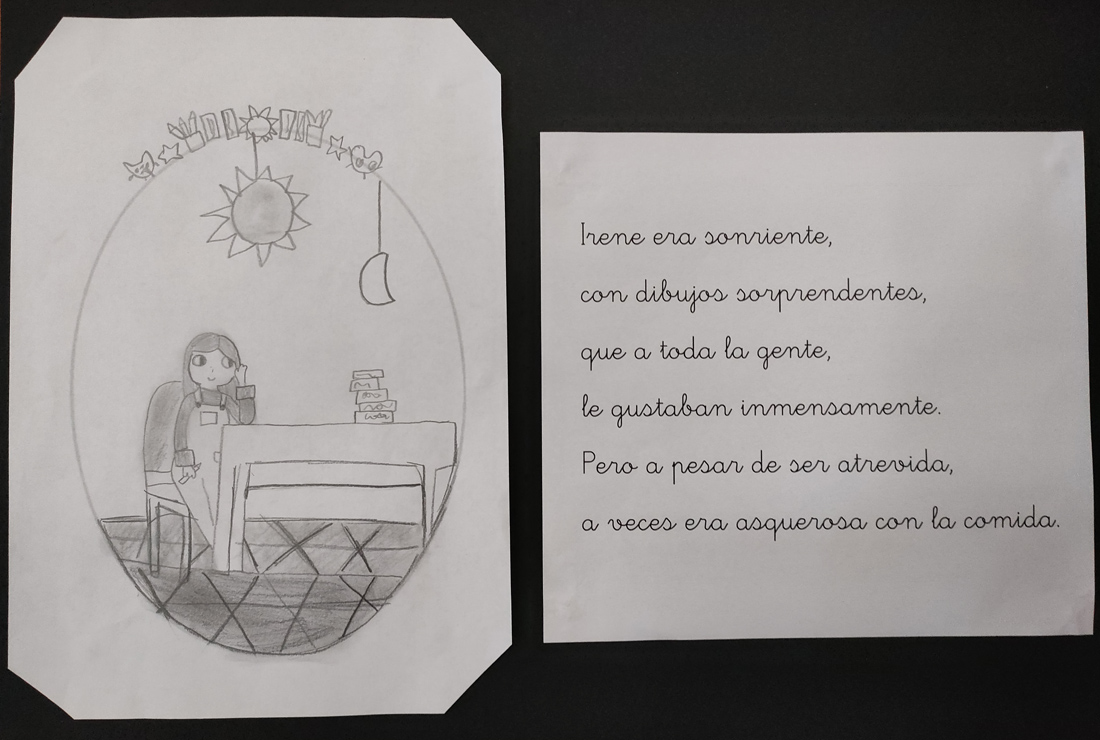 Irene era sonriente,
con dibujos sorprendentes,
que a toda la gente,
le gustaban inmensamente.
Pero a pesar de ser atrevida,
a veces era asquerosa con la comida.